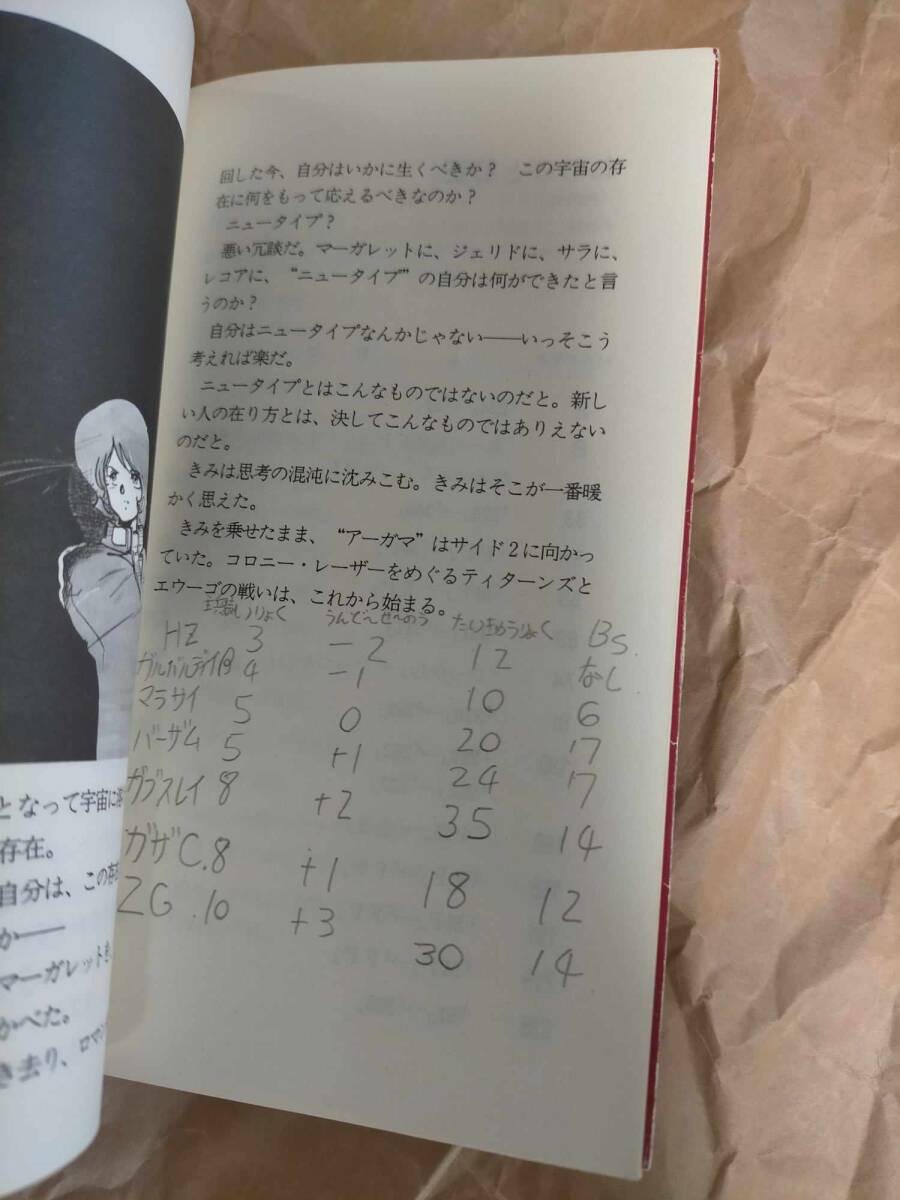 回した今、自分はいかに生くべきか？　この宇宙の存
在に何をもって応えるべきなのか？
ニュータイプ？
悪い冗談だ。マーガレットに、ジェリドに、サラに、
レコアに、“ニュータイプ”の自分は何ができたと言
うのか？
自分はニュータイプなんかじゃない――いっそこう
考えれば楽だ。
ニュータイプとはこんなものではないのだと。新し
い人の在り方とは、決してこんなものではありえない
のだと。
きみは思考の混沌に沈みこむ。きみはそこが一番暖
かく思えた。
きみを乗せたまま、“アーガマ”はサイド２に向かっ
ていた。コロニー・レーザーをめぐるティターンズと
エウーゴの戦いは、これから始まる。
りょく うんどーせーのう たいきゅうりょく BS.
HZ 3 −2 12 なし
ガルバルディβ 4 −1 10 6
マラサイ 5 0 20 17
バーザム 5 +1 24 17
ガブスレイ 8 +2 35 14
ガザC. 8 +1 18 12
ZG .10 +3 30 14
となって宇宙に
存在。
自分は、この存
か――
マーガレットを
かべた。
き去り、ロマ